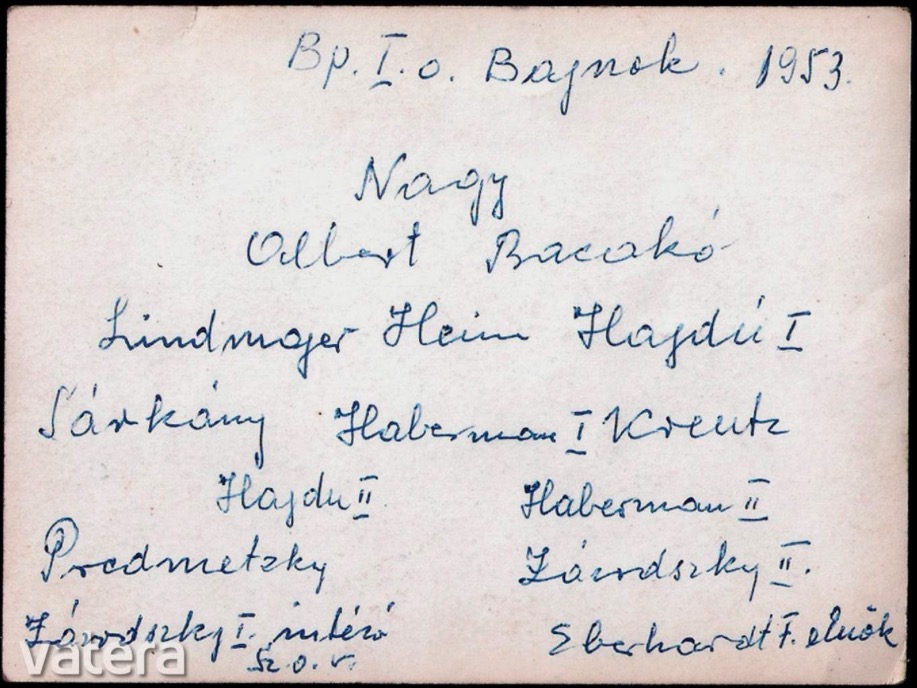 Bp. I. o. Bajnok. 1953.
Nagy
Albert Bacakó
Lindmajer Heim Hajdú I
Sárkány Haberman I Kreutz
Hajdu II
Haberman II
Predmetzky Závodszky II.
Závodszky I. intéző Eberhardt F. elnök
sz. o. v.
vatera